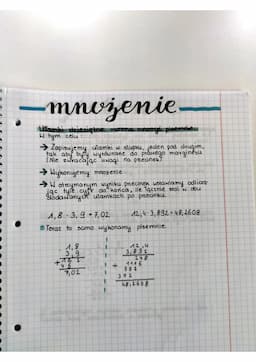 mnożenie
Ułamki dziesiętne można mnożyć pisemnie.
W tym celu:
→ Zapisujemy ułamki w słupku, jeden pod drugim,
tak aby były wyrównane do prawego marginesu
(nie zwracając uwagi na przecinek).
→ Wykonujemy mnożenie.
→ W otrzymanym wyniku przecinek ustawiamy odlicza-
jąc tyle cyfr od końca, ile łącznie stoi w obu
ułamkach po przecinku.
1,8 · 3,9 = 7,02 12,4 · 3,892 = 48,2608
Teraz to samo wykonamy pisemnie.
1,8 12,4
3,9 3,892
+ 162 248
7,02 + 1116
372
48,2608